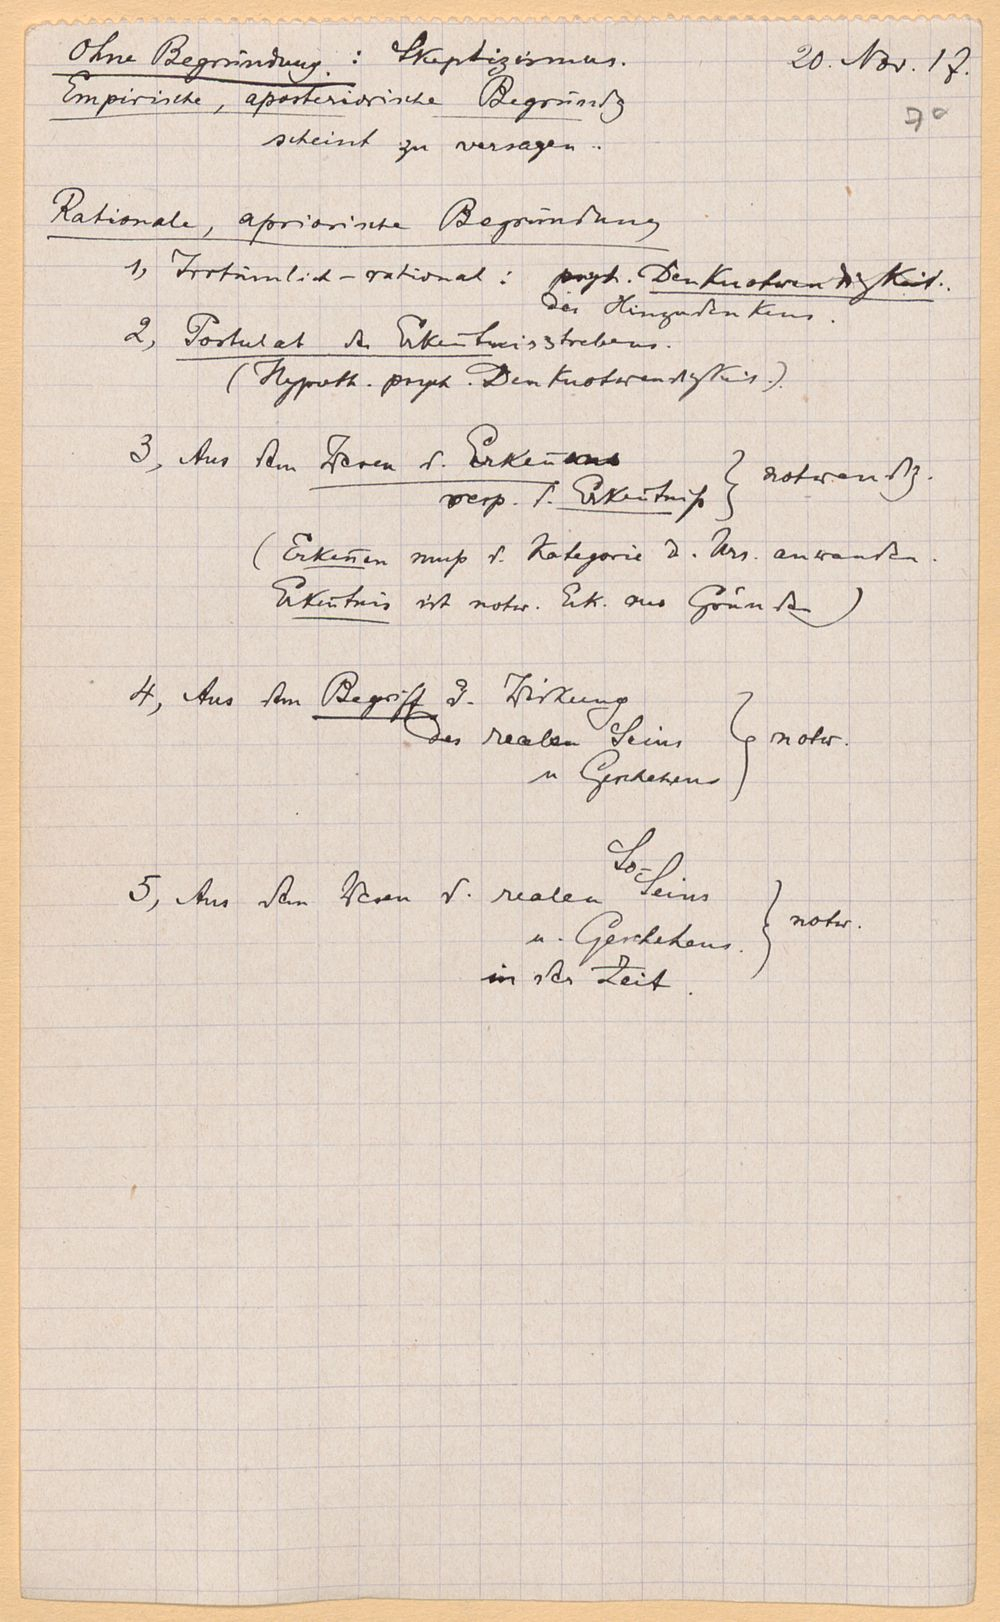 Ohne Begründung : Skeptizismus. 20. Nov. 17.
7°
Empirische, aposteriorische Begründg
scheint zu versagen.
Rationale, apriorische Begründung
1, Irrtümlich-rational : psych. Denknotwendigkeit.
des Hinzudenkens.
2, Postulat des Erkenntnisstrebens.
(Hypoth. psych. Denknotwendigkeit.)
3, Aus dem Wesen d. Erkennens
resp. d. Erkenntniß } notwendg.
(Erkennen muß d. Kategorie d. Urs. anwenden.
Erkenntnis ist notw. Erk. aus Gründen)
4, Aus dem Begriff d. Wirkung
des realen Seins } notw.
u Geschehens
5, Aus dem Wesen d. realen So-Seins
u. Geschehens. } notw.
in der Zeit.